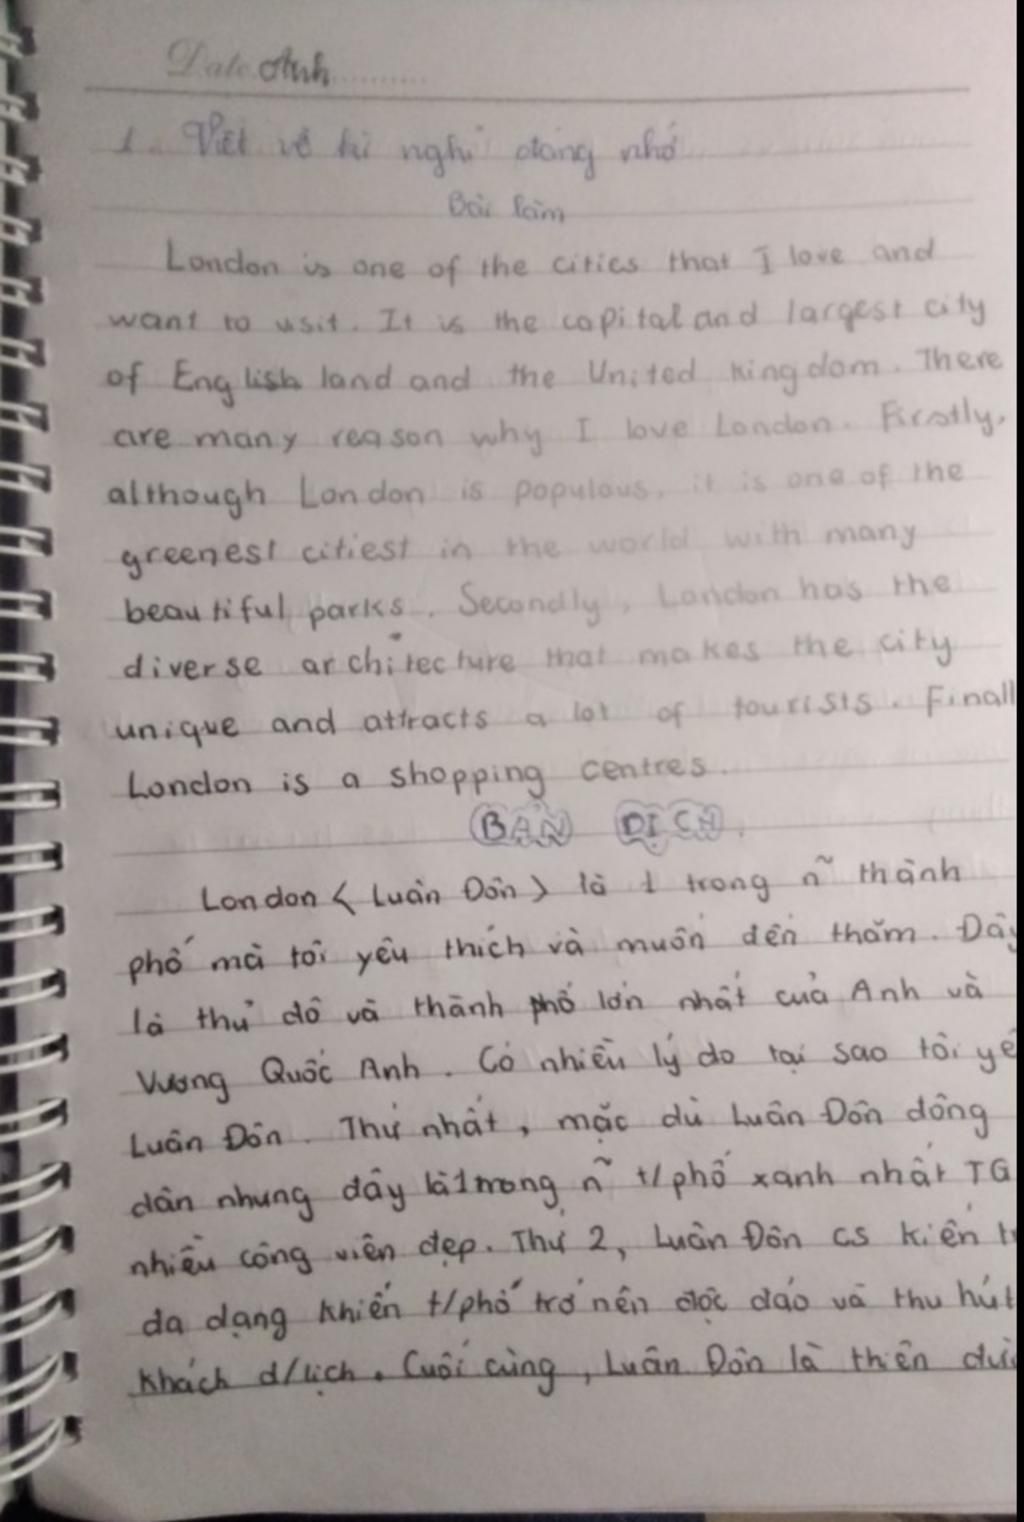 Date Anh
1. Viết về kì nghỉ đáng nhớ
Bài làm
London is one of the cities that I love and
want to usit. It is the capital and largest city
of English land and the United kingdom. There
are many reason why I love London. Firstly,
although London is populous, it is one of the
greenest citiest in the world with many
beautiful parks. Secondly, London has the
diverse architecture that makes the city
unique and attracts a lot of tourists. Finall
London is a shopping centres.
BẢN DỊCH
London < Luân Đôn > là 1 trong ñ thành
phố mà tôi yêu thích và muốn đến thăm. Đây
là thủ đô và thành phố lớn nhất của Anh và
Vương Quốc Anh. Có nhiều lý do tại sao tôi yê
Luân Đôn. Thứ nhất, mặc dù Luân Đôn đông
dân nhưng đây là 1 trong ñ t/phố xanh nhất TG
nhiều công viên đẹp. Thứ 2, Luân Đôn cs kiến t
đa dạng khiến t/phố trở nên độc đáo và thu hút
khách d/lịch. Cuối cùng, Luân Đôn là thiên đườ